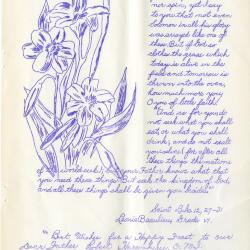 nor spin, yet I say
to you that not even
Solomon in all his glory
was arrayed like one of
these. But if God so
clothes the grass which
today is alive in the
field and tomorrow is
thrown into the oven,
how much more you
O you of little faith!
"And as for you do
not seek what you shall
eat, or what you shall
drink; and do not seek
for after all
these things the nations
of the world seek; but your Father knows that
you need these things. But seek the kingdom of God,
and all these things shall be given you besides"
Saint Luke 12, 27-31
"Best Wishes for a Happy Feast to our
Dear Father Robert